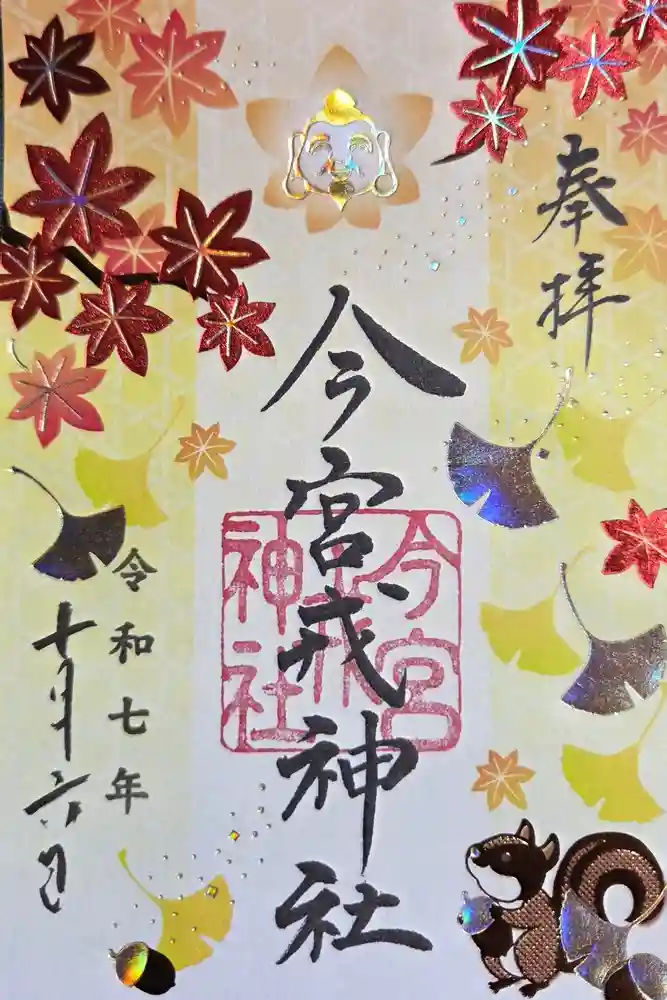 奉拝
今宮戎神社
今宮
戎
神社
令和七年
十月六日